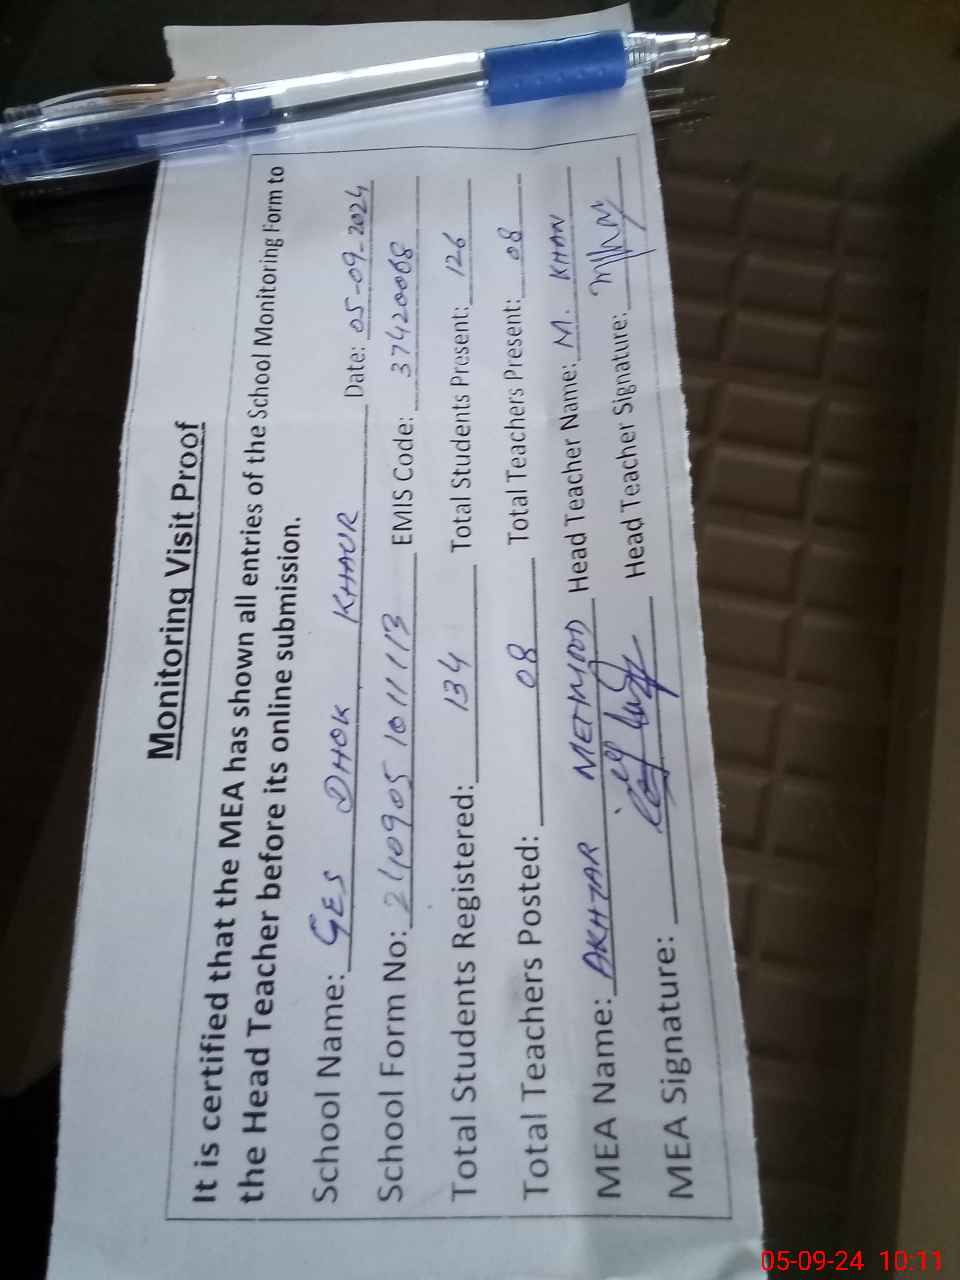 Monitoring Visit Proof
It is certified that the MEA has shown all entries of the School Monitoring Form to
the Head Teacher before its online submission.
School Name: GES DHOK KHAUR Date: 05-09-2024
School Form No: 240905101113 EMIS Code: 37420068
Total Students Registered: 134 Total Students Present: 126
Total Teachers Posted: 08 Total Teachers Present: 08
MEA Name: AKHTAR MEHMOOD Head Teacher Name: M. KHAN
MEA Signature: Head Teacher Signature:
05-09-24 10:11